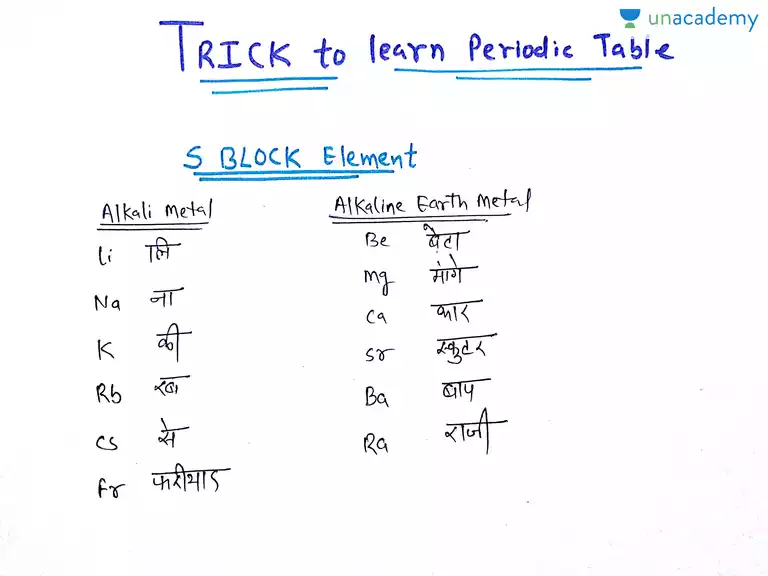 unacademy
TRICK to learn Periodic Table
S BLOCK Element
Alkali Metal
Li लि
Na ना
K की
Rb रब
Cs से
Fr फरीयाद
Alkaline Earth Metal
Be बेटा
Mg मांगे
Ca कार
Sr स्कुटर
Ba बाप
Ra राजी